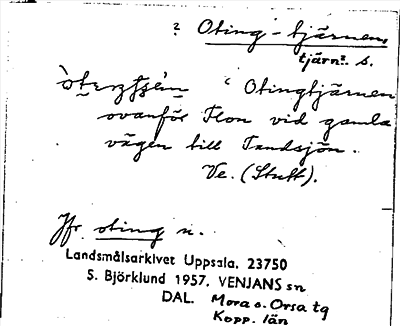 ? Oting-tjärnen,
tjärn. s.
" Otingtjärnen
ovanför Flon vid gamla
vägen till Tandsjön.
Ve. (Stutt).
Jfr oting n.
Landsmålsarkivet Uppsala. 23750
S. Björklund 1957. VENJANS sn
DAL. Mora o. Orsa tg
Kopp. län